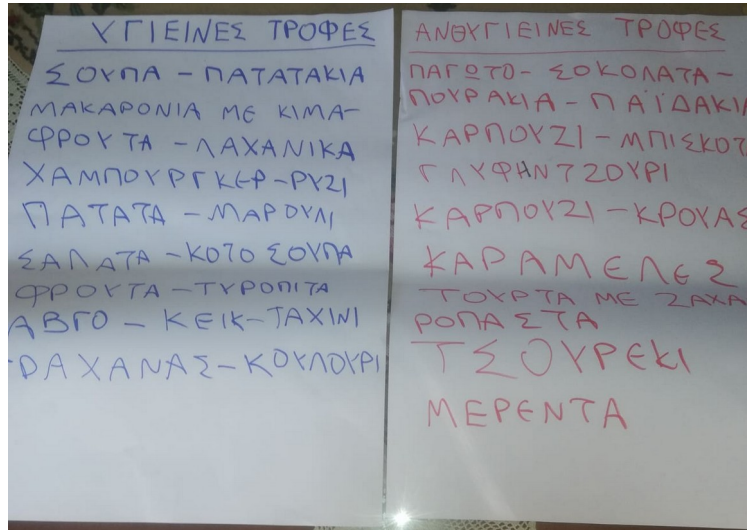 ΥΓΙΕΙΝΕΣ ΤΡΟΦΕΣ
ΣΟΥΠΑ – ΠΑΤΑΤΑΚΙΑ
ΜΑΚΑΡΟΝΙΑ ΜΕ ΚΙΜΑ–
ΦΡΟΥΤΑ – ΛΑΧΑΝΙΚΑ
ΧΑΜΠΟΥΡΓΚΕΡ – ΡΥΖΙ
ΠΑΤΑΤΑ – ΜΑΡΟΥΛΙ
ΣΑΛΑΤΑ – ΚΟΤΟ ΣΟΥΠΑ
ΦΡΟΥΤΑ – ΤΥΡΟΠΙΤΑ
ΑΒΓΟ – ΚΕΙΚ – ΤΑΧΙΝΙ
ΡΑΧΑΝΑΣ – ΚΟΥΛΟΥΡΙ
ΑΝΘΥΓΙΕΙΝΕΣ ΤΡΟΦΕΣ
ΠΑΓΩΤΟ – ΣΟΚΟΛΑΤΑ –
ΠΟΥΡΑΚΙΑ – ΠΑΪΔΑΚΙΑ
ΚΑΡΠΟΥΖΙ – ΜΠΙΣΚΟΤ
ΓΛΥΦΗΝΤΖΟΥΡΙ
ΚΑΡΠΟΥΖΙ – ΚΡΟΥΑΣ
ΚΑΡΑΜΕΛΕΣ
ΤΟΥΡΤΑ ΜΕ ΖΑΧΑ
ΡΟΠΑΣΤΑ
ΤΣΟΥΡΕΚΙ
ΜΕΡΕΝΤΑ